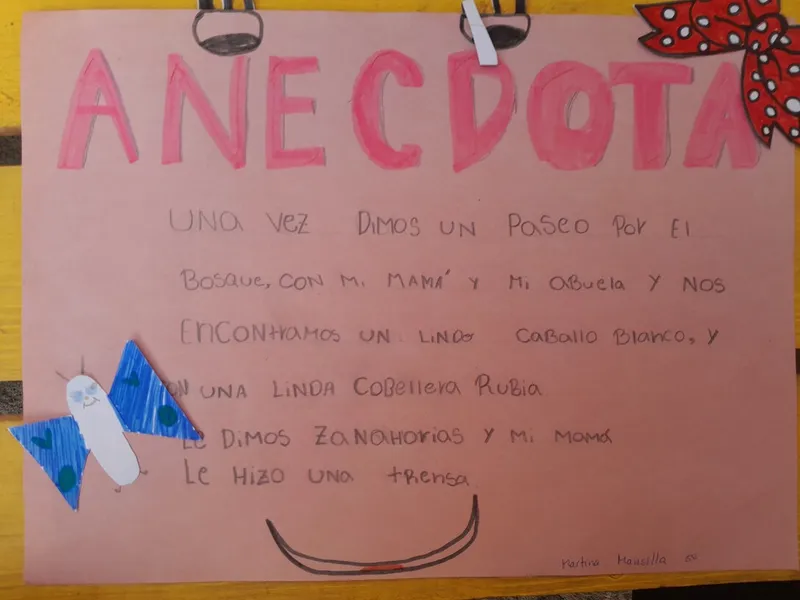 ANECDOTA
UNA VEZ DIMOS UN PASEO POR El
BOSQUE, CON MI MAMÁ Y MI abuela Y NOS
ENCONTRAMOS UN LINDO CABALLO BLANCO, Y
ON UNA LINDA COBELLERA RUBIA
LE DIMOS ZANAHORIAS Y MI MAMÁ
LE HIZO UNA TRENSA
Martina Mansilla